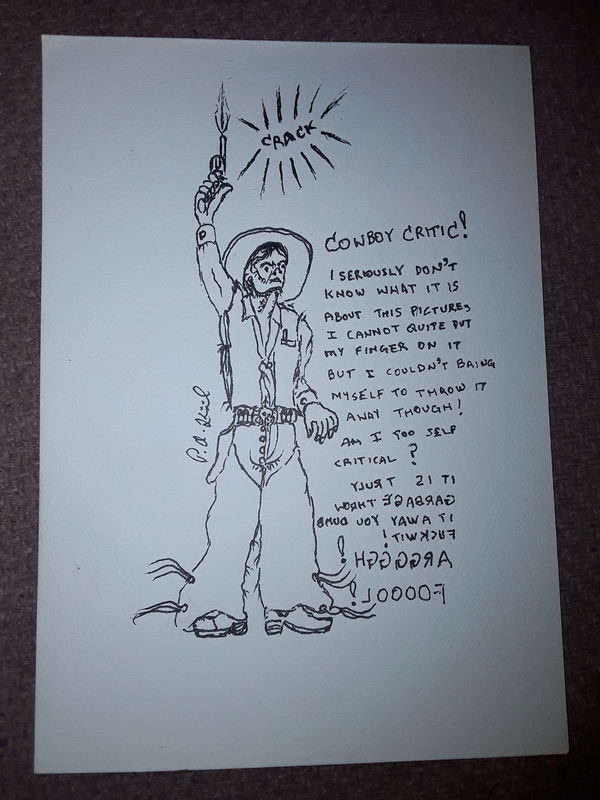 CRACK
COWBOY CRITIC!
I SERIOUSLY DON'T
KNOW WHAT IT IS
ABOUT THIS PICTURE,
I CANNOT QUITE PUT
MY FINGER ON IT
BUT I COULDN'T BRING
MYSELF TO THROW IT
AWAY THOUGH!
AM I TOO SELF
CRITICAL?
IT IS TRULY
GARBAGE THROW
IT AWAY YOU DUMB
FUCKWIT!
ARGGGGH!
FOOOOL!